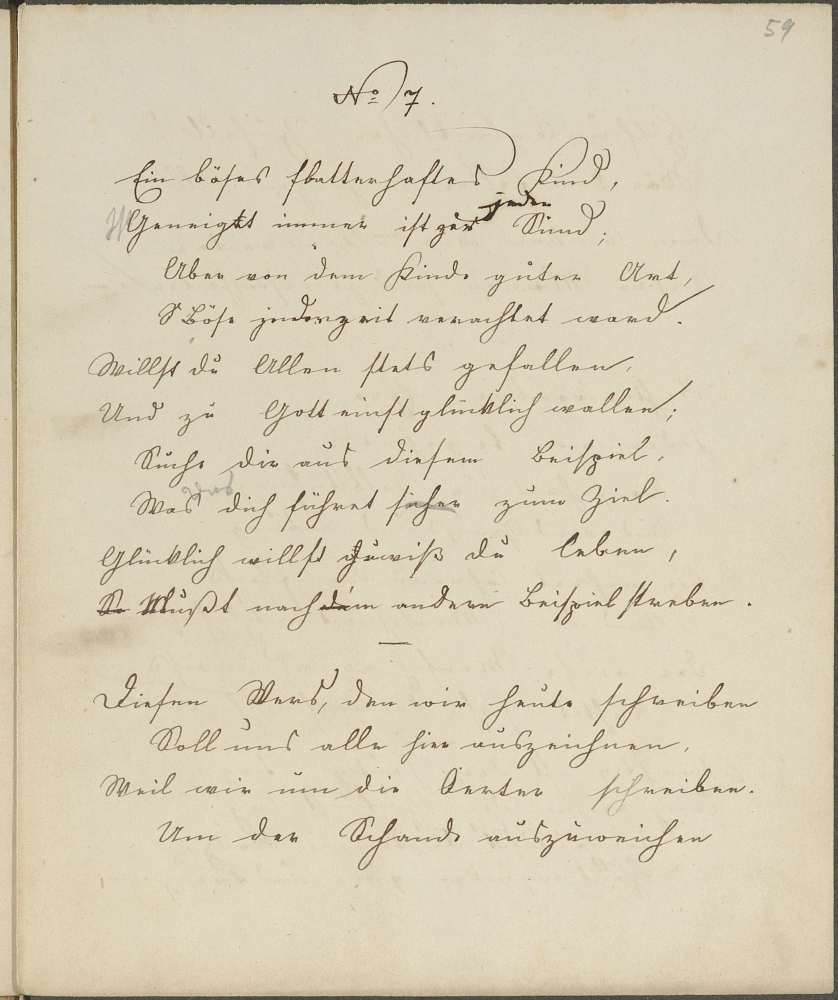 59
No 7.
Ein böses flatterhaftes Kind,
Geneigt immer ist zur jeden Sünd;
Aber von dem Kinde guter Art,
S Böse jederzeit verachtet ward.
Willst du Allen stets gefallen,
Und zu Gott einst glücklich wallen;
Suche dir aus diesem Beispiel,
Was dich führet sicher zum Ziel.
Glücklich willst gewiß du leben,
So Mußt nach dem andern Beispiel streben.
Diesen Vers, den wir heute schreiben
Soll uns alle hier auszeichnen,
Weil wir um die Oerter schreiben.
Um der Schande auszuweichen